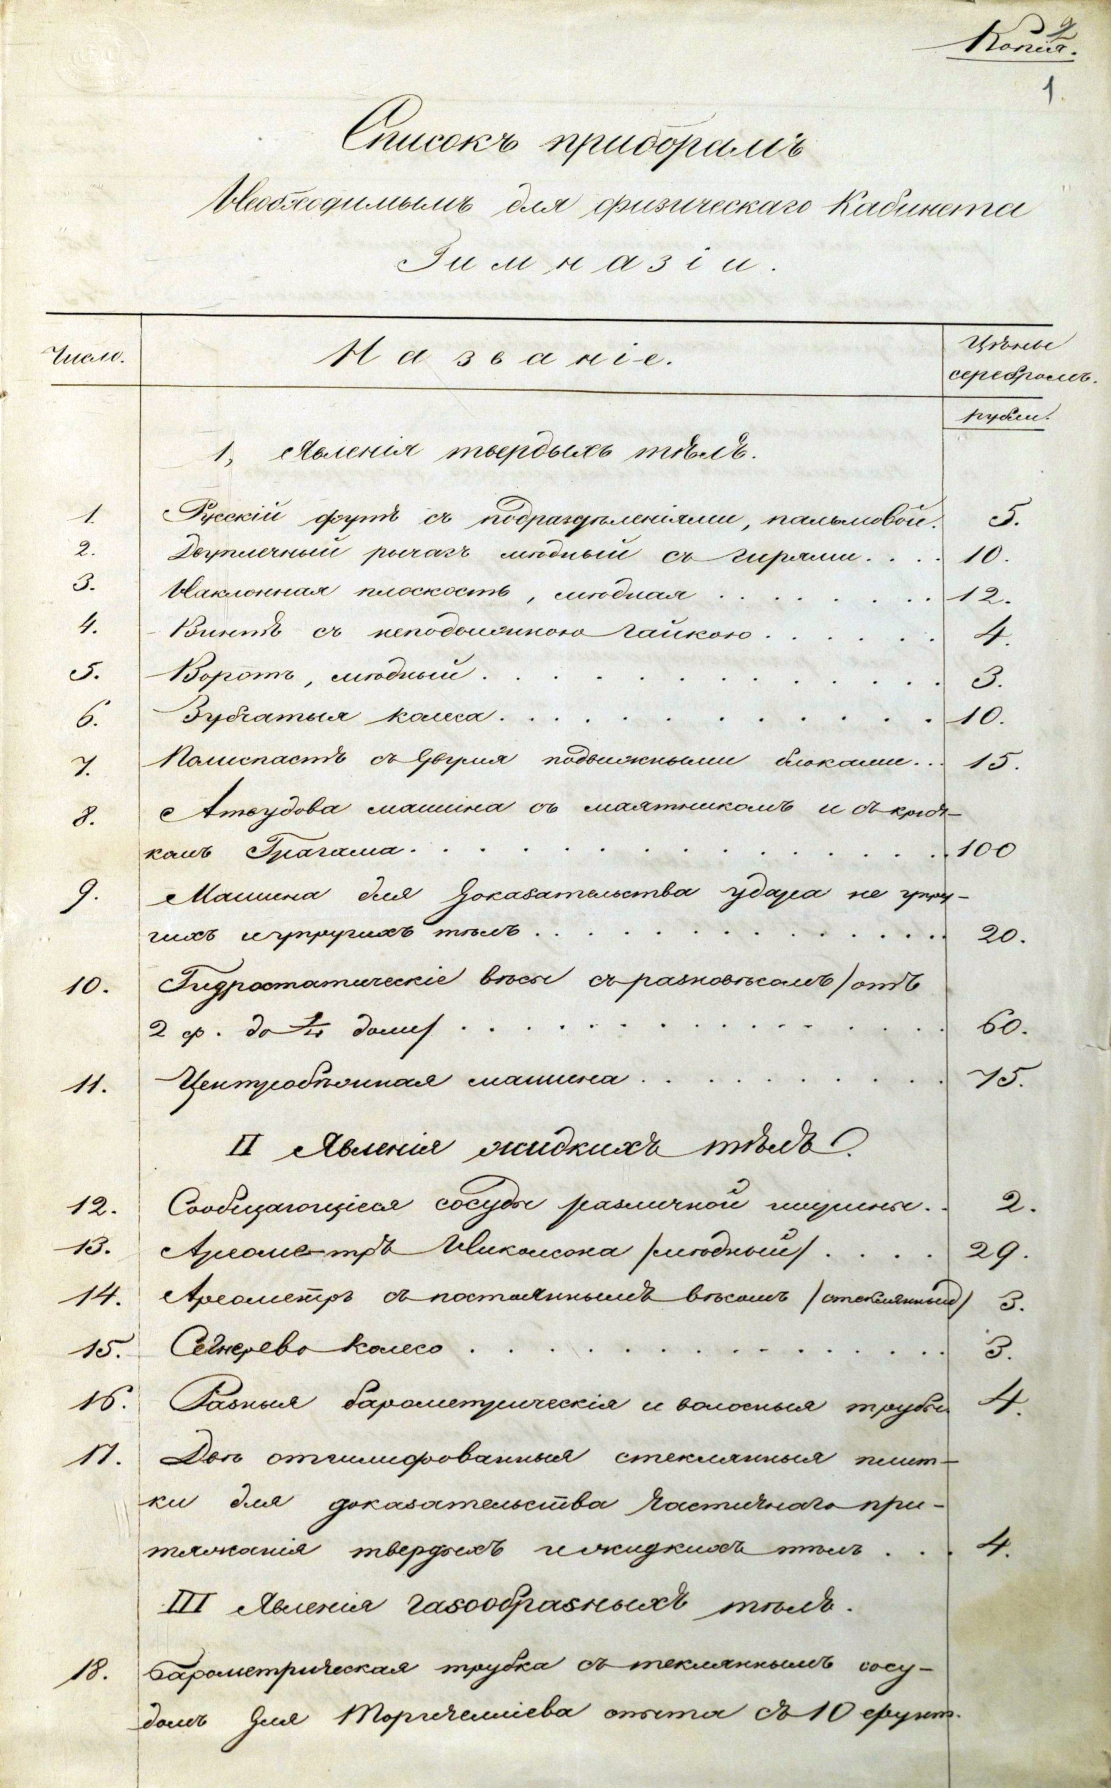 Копія.
2
1
Списокъ приборамъ
Необходимымъ для физическаго Кабинета
Гимназіи.
Число.
Названіе.
Цѣны
серебромъ.
Рубли.
1, Явленія твердыхъ тѣлъ.
1. Русскій футъ съ подраздѣленіями, пальмовой. 5.
2. Двуплечный рычагъ мѣдный съ гирями. . . . 10.
3. Наклонная плоскость, мѣдная . . . . . . . . 12.
4. Винтъ съ неподвижною гайкою. . . . . . 4.
5. Воротъ, мѣдный. . . . . . . . . . . . . 3.
6. Зубчатыя колеса. . . . . . . . . . . . 10.
7. Полиспастъ съ двумя подвижными блоками. . . 15.
8. Атвудова машина съ маятникомъ и съ крюч-
комъ Грагама. . . . . . . . . . . . . . 100
9. Машина для доказательства удара не упру-
гихъ и упругихъ тѣлъ . . . . . . . . . . . . . . 20.
10. Гидростатическіе вѣсы съ разновѣсомъ /отъ
2 ф. до 1/4 доли/ . . . . . . . . . . . . . . . 60.
11. Центробѣжная машина . . . . . . . . . . . 75.
II Явленія жидкихъ тѣлъ.
12. Сообщающіеся сосуды различной ширины. . 2.
13. Ареометръ Никольсона /мѣдный/ . . . . 29.
14. Ареометръ съ постояннымъ вѣсомъ /стеклянный/ 3.
15. Сегнерево колесо . . . . . . . . . . . . . . 3.
16. Разныя барометрическія и волосныя трубки 4.
17. Двѣ отшлифованныя стеклянныя плит-
ки для доказательства частичнаго при-
тяжанія твердыхъ и жидкихъ тѣлъ . . . 4.
III Явленія газообразныхъ тѣлъ.
18. Барометрическая трубка съ теклянымъ сосу-
домъ для Торичелліева опыта съ 10 фунт.